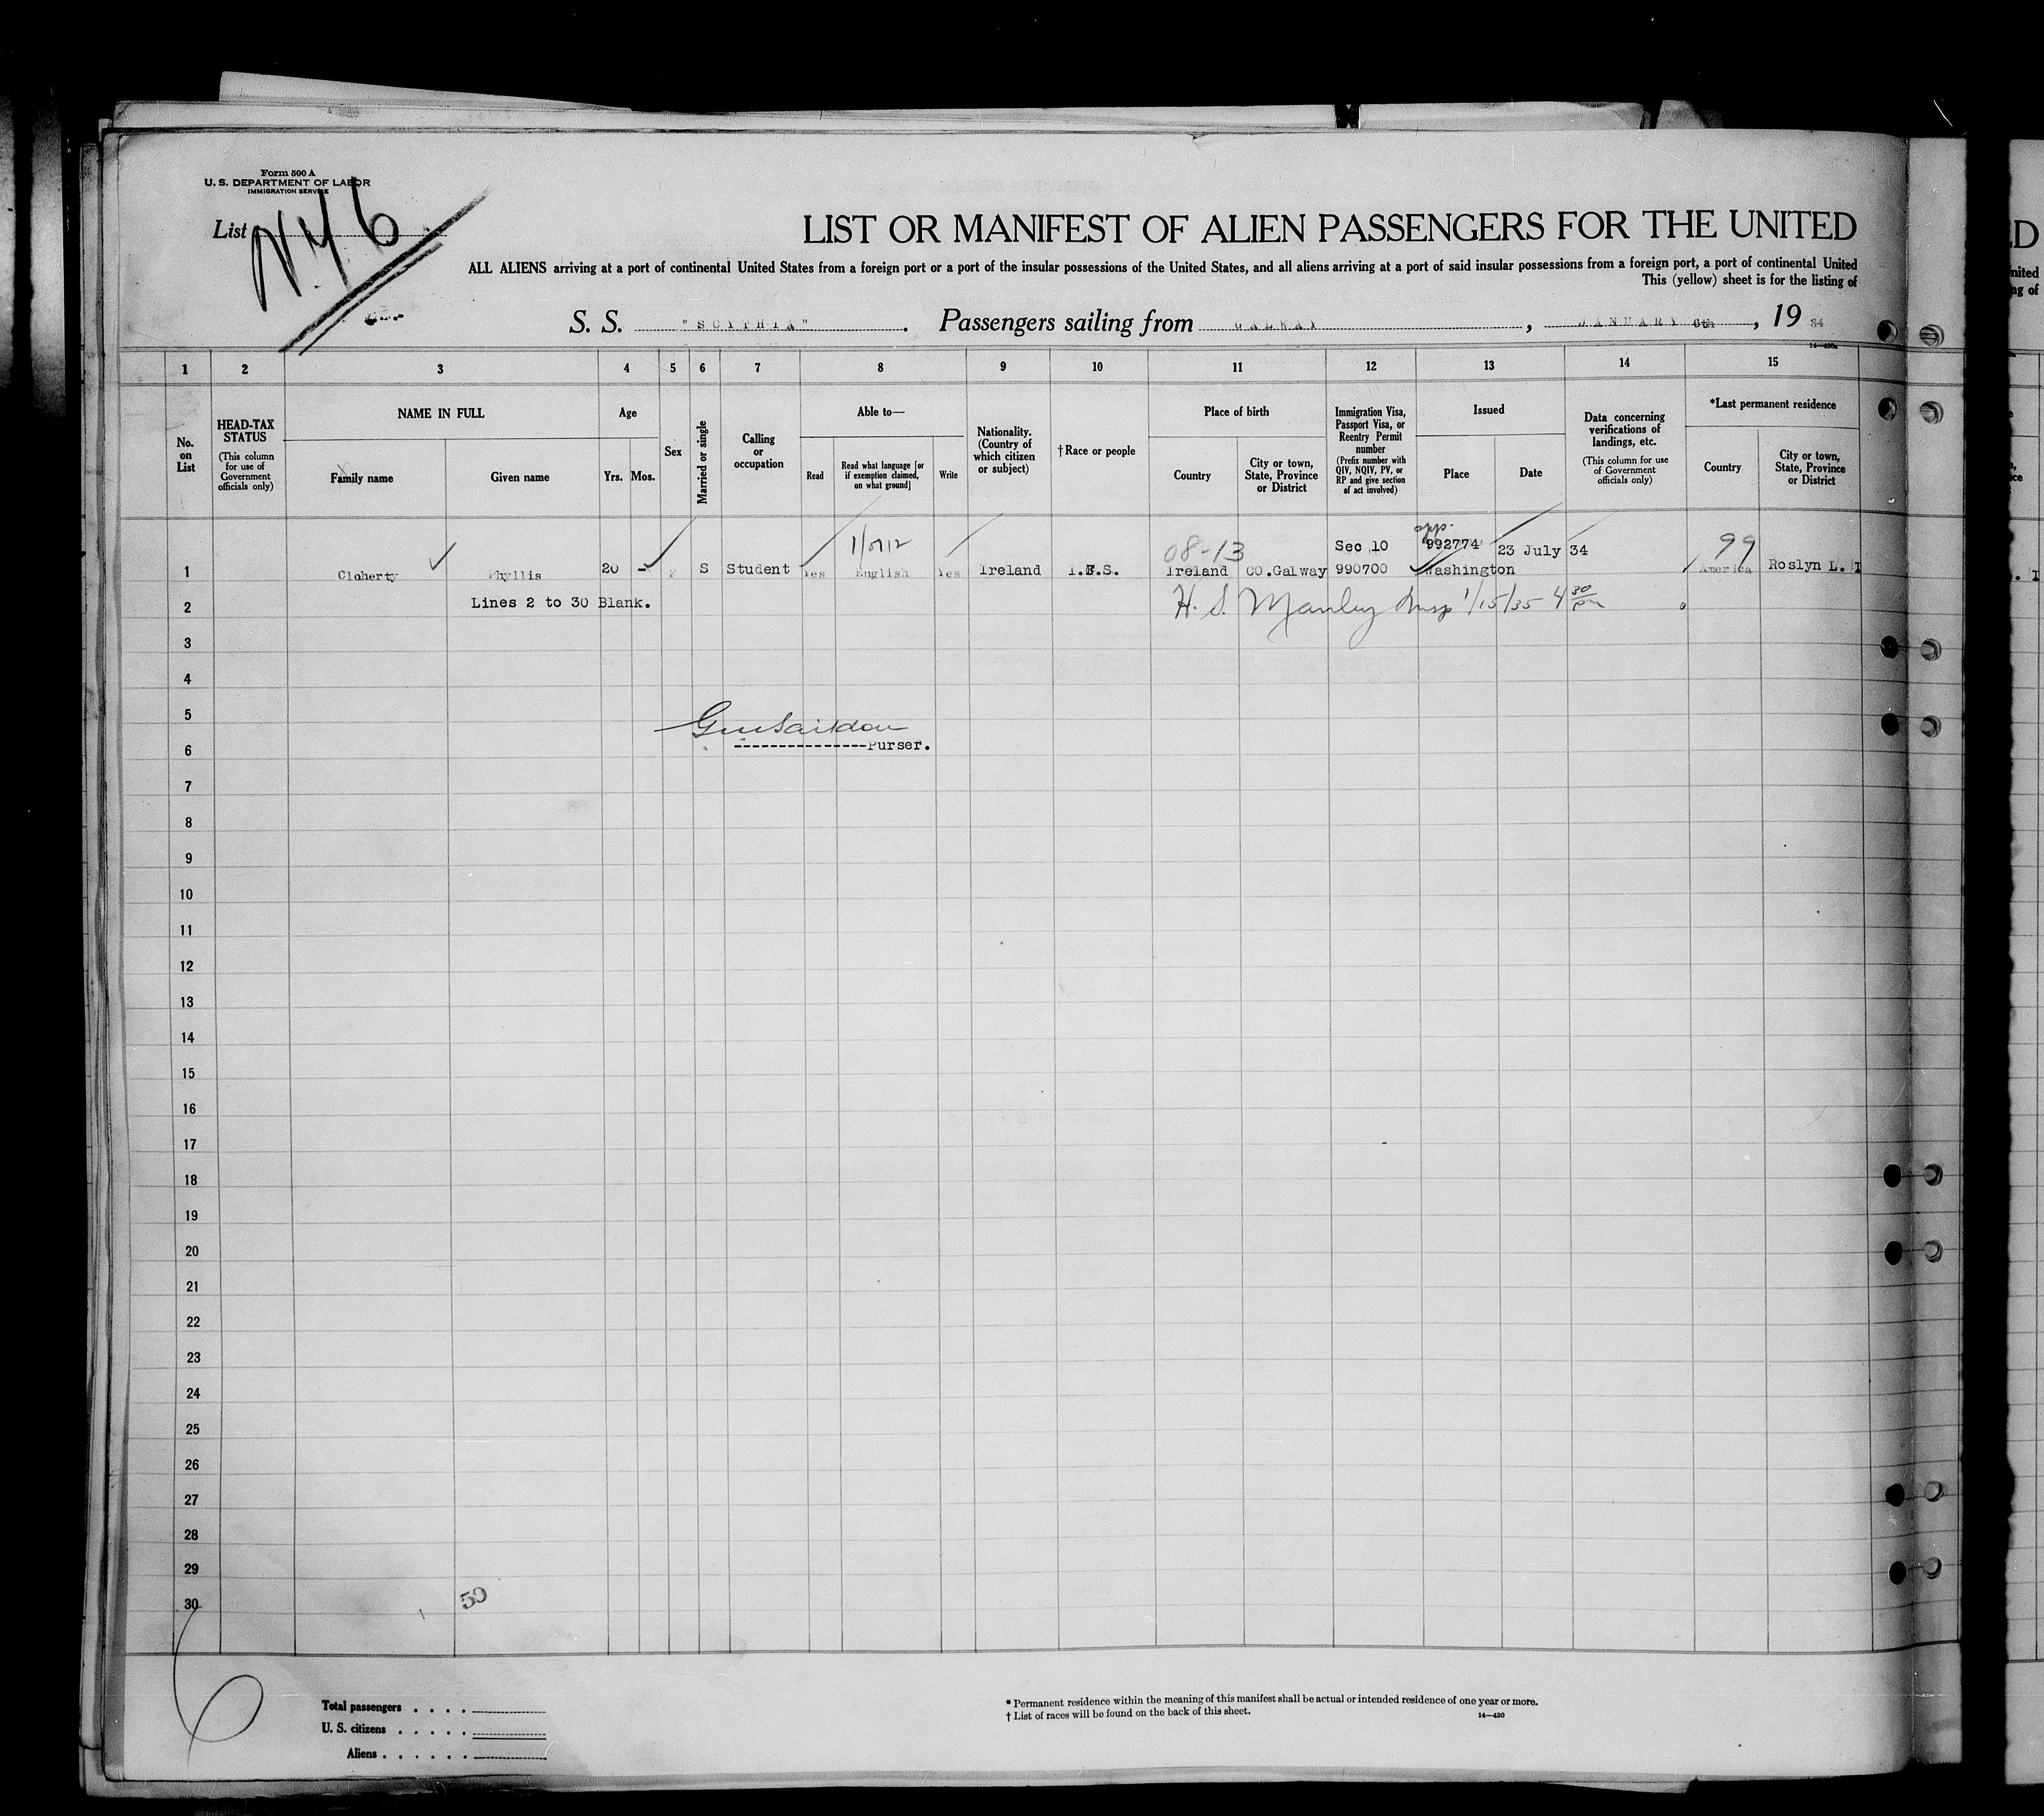 Form 500 A
U. S. DEPARTMENT OF LABOR
IMMIGRATION SERVICE
List N.Y. 6
LIST OR MANIFEST OF ALIEN PASSENGERS FOR THE UNITED
ALL ALIENS arriving at a port of continental United States from a foreign port or a port of the insular possessions of the United States, and all aliens arriving at a port of said insular possessions from a foreign port, a port of continental United
This (yellow) sheet is for the listing of
S. S. "SCYTHIA". Passengers sailing from GALWAY, JANUARY 6th, 19 34
14—430a
1 2 3 4 5 6 7 8 9 10 11 12 13 14 15
No. on List
HEAD-TAX STATUS
(This column for use of Government officials only)
NAME IN FULL
Family name
Given name
Age
Yrs. Mos.
Sex
Married or single
Calling or occupation
Able to—
Read
Read what language [or if exemption claimed, on what ground]
Write
Nationality. (Country of which citizen or subject)
†Race or people
Place of birth
Country
City or town, State, Province or District
Immigration Visa, Passport Visa, or Reentry Permit number
(Prefix number with QIV, NQIV, PV, or RP and give section of act involved)
Issued
Place
Date
Data concerning verifications of landings, etc.
(This column for use of Government officials only)
*Last permanent residence
Country
City or town, State, Province or District
app.
08-13 Sec 10 992774 23 July 34 99
1 Cloherty Phyllis 20 - F S Student Yes English Yes Ireland I.F.S. Ireland CO.Galway 990700 Washington America Roslyn L. I
2 Lines 2 to 30 Blank. H. S. Manley Insp 1/15/35 4 30 pm
3
4
5
6 Purser.
7
8
9
10
11
12
13
14
15
16
17
18
19
20
21
22
23
24
25
26
27
28
29
30
50
Total passengers . . . .
U. S. citizens . . . . .
Aliens . . . . . .
* Permanent residence within the meaning of this manifest shall be actual or intended residence of one year or more.
† List of races will be found on the back of this sheet.
14—430